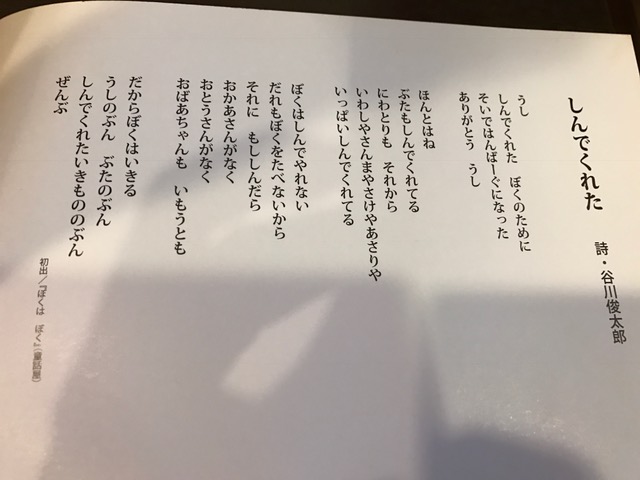 しんでくれた
詩・谷川俊太郎
うし
しんでくれた　ぼくのために
そいではんばーぐになった
ありがとう　うし
ほんとはね
ぶたもしんでくれてる
にわとりも　それから
いわしやさんまやさけやあさりや
いっぱいしんでくれてる
ぼくはしんでやれない
だれもぼくをたべないから
それに　もししんだら
おかあさんがなく
おとうさんがなく
おばあちゃんも　いもうとも
だからぼくはいきる
うしのぶん　ぶたのぶん
しんでくれたいきもののぶん
ぜんぶ
初出／『ぼくは　ぼく』（童話屋）